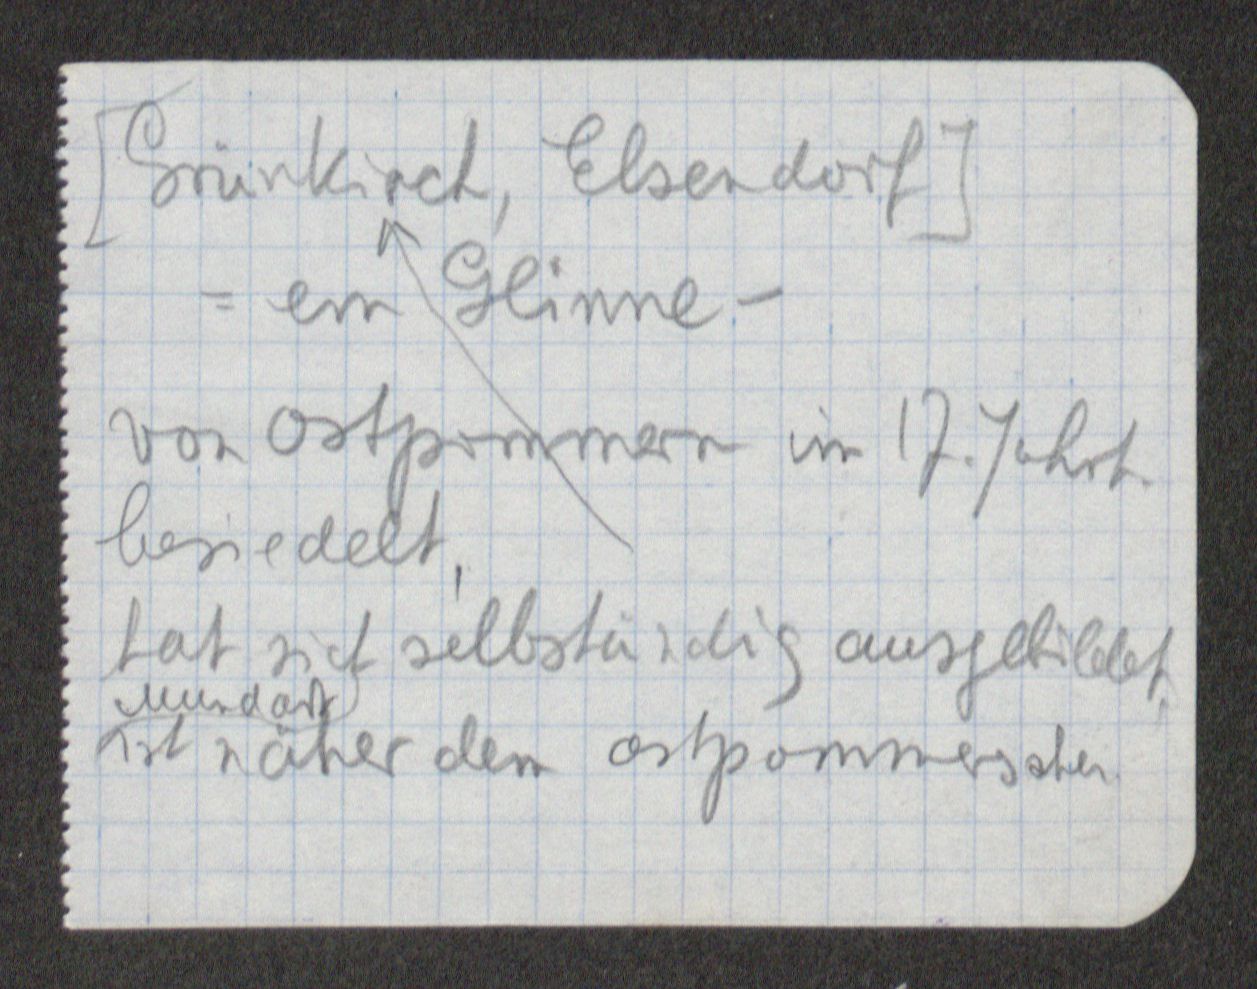 [Grünkirch, Elsendorf]
= ein Glinne -
von Ostpommern im 17. Jahrh.
besiedelt,
hat sich selbständig ausgebildet,
Mundart
ist näher dem ostpommerschen